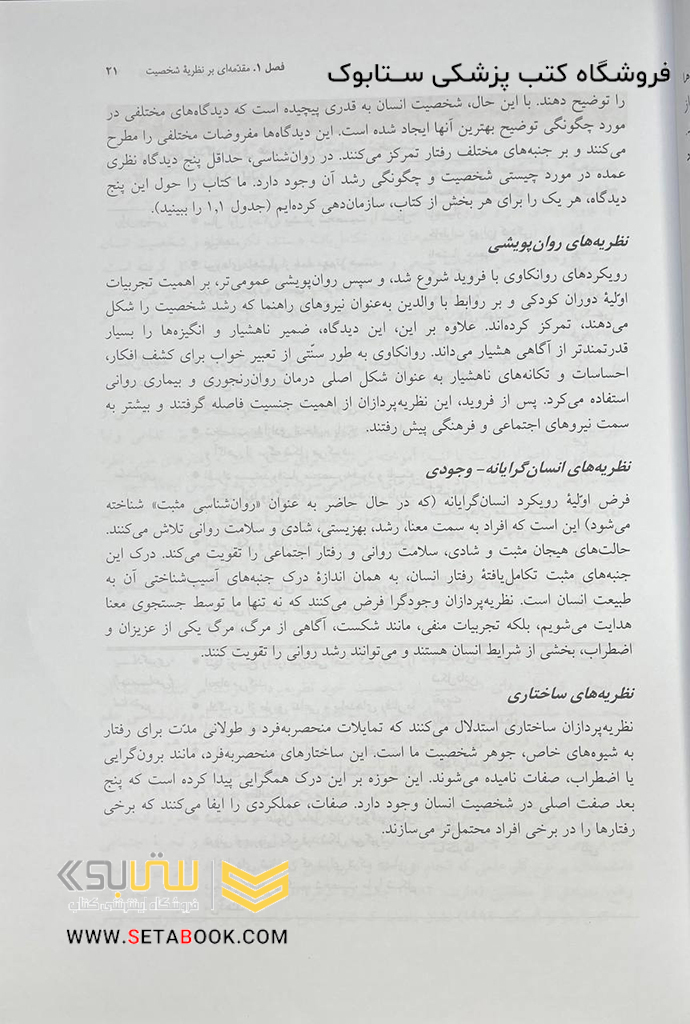 فصل ۱. مقدّمه‌ای بر نظریهٔ شخصیت ۲۱
فروشگاه کتب پزشکی ستابوک
را توضیح دهند. با این حال، شخصیت انسان به قدری پیچیده است که دیدگاه‌های مختلفی در
مورد چگونگی توضیح بهترین آنها ایجاد شده است. این دیدگاه‌ها مفروضات مختلفی را مطرح
می‌کنند و بر جنبه‌های مختلف رفتار تمرکز می‌کنند. در روان‌شناسی، حداقل پنج دیدگاه نظری
عمده در مورد چیستی شخصیت و چگونگی رشد آن وجود دارد. ما کتاب را حول این پنج
دیدگاه، هر یک را برای هر بخش از کتاب، سازمان‌دهی کرده‌ایم (جدول ۱,۱ را ببینید).
نظریه‌های روان‌پویشی
رویکردهای روانکاوی با فروید شروع شد، و سپس روان‌پویشی عمومی‌تر، بر اهمیت تجربیات
اوّلیهٔ دوران کودکی و بر روابط با والدین به‌عنوان نیروهای راهنما که رشد شخصیت را شکل
می‌دهند، تمرکز کرده‌اند. علاوه بر این، این دیدگاه، ضمیر ناهشیار و انگیزه‌ها را بسیار
قدرتمندتر از آگاهی هشیار می‌داند. روانکاوی به طور سنّتی از تعبیر خواب برای کشف افکار،
احساسات و تکانه‌های ناهشیار به عنوان شکل اصلی درمان روان‌رنجوری و بیماری روانی
استفاده می‌کرد. پس از فروید، این نظریه‌پردازان از اهمیت جنسیت فاصله گرفتند و بیشتر به
سمت نیروهای اجتماعی و فرهنگی پیش رفتند.
نظریه‌های انسان‌گرایانه- وجودی
فرض اوّلیهٔ رویکرد انسان‌گرایانه (که در حال حاضر به عنوان «روان‌شناسی مثبت» شناخته
می‌شود) این است که افراد به سمت معنا، رشد، بهزیستی، شادی و سلامت روانی تلاش می‌کنند.
حالت‌های هیجان مثبت و شادی، سلامت روانی و رفتار اجتماعی را تقویت می‌کند. درک این
جنبه‌های مثبت تکامل‌یافتهٔ رفتار انسان، به همان اندازهٔ درک جنبه‌های آسیب‌شناختی آن به
طبیعت انسان است. نظریه‌پردازان وجودگرا فرض می‌کنند که نه تنها ما توسط جستجوی معنا
هدایت می‌شویم، بلکه تجربیات منفی، مانند شکست، آگاهی از مرگ، مرگ یکی از عزیزان و
اضطراب، بخشی از شرایط انسان هستند و می‌توانند رشد روانی را تقویت کنند.
نظریه‌های ساختاری
نظریه‌پردازان ساختاری استدلال می‌کنند که تمایلات منحصربه‌فرد و طولانی مدّت برای رفتار
به شیوه‌های خاص، جوهر شخصیت ما است. این ساختارهای منحصربه‌فرد، مانند برون‌گرایی
یا اضطراب، صفات نامیده می‌شوند. این حوزه بر این درک همگرایی پیدا کرده است که پنج
بعد صفت اصلی در شخصیت انسان وجود دارد. صفات، عملکردی را ایفا می‌کنند که برخی
رفتارها را در برخی افراد محتمل‌تر می‌سازند.
ستابوک
فروشگاه اینترنتی کتاب
WWW.SETABOOK.COM